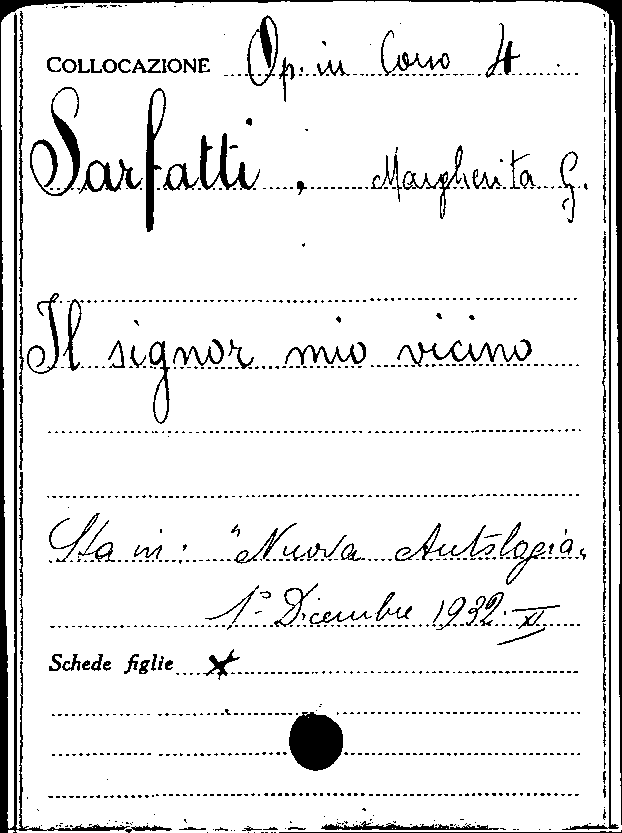 COLLOCAZIONE Op. in Corso 4
Sarfatti, Margherita G.
Il signor mio vicino
Sta in: "Nuova Antologia"
1° Dicembre 1932. XI
Schede figlie x